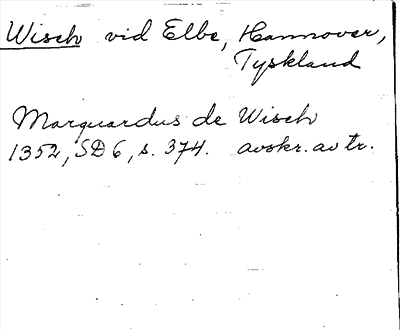 Wisch vid Elbe, Hannover,
Tyskland
Marquardus de Wisch
1352, SD 6, s. 374. avskr. av tr.